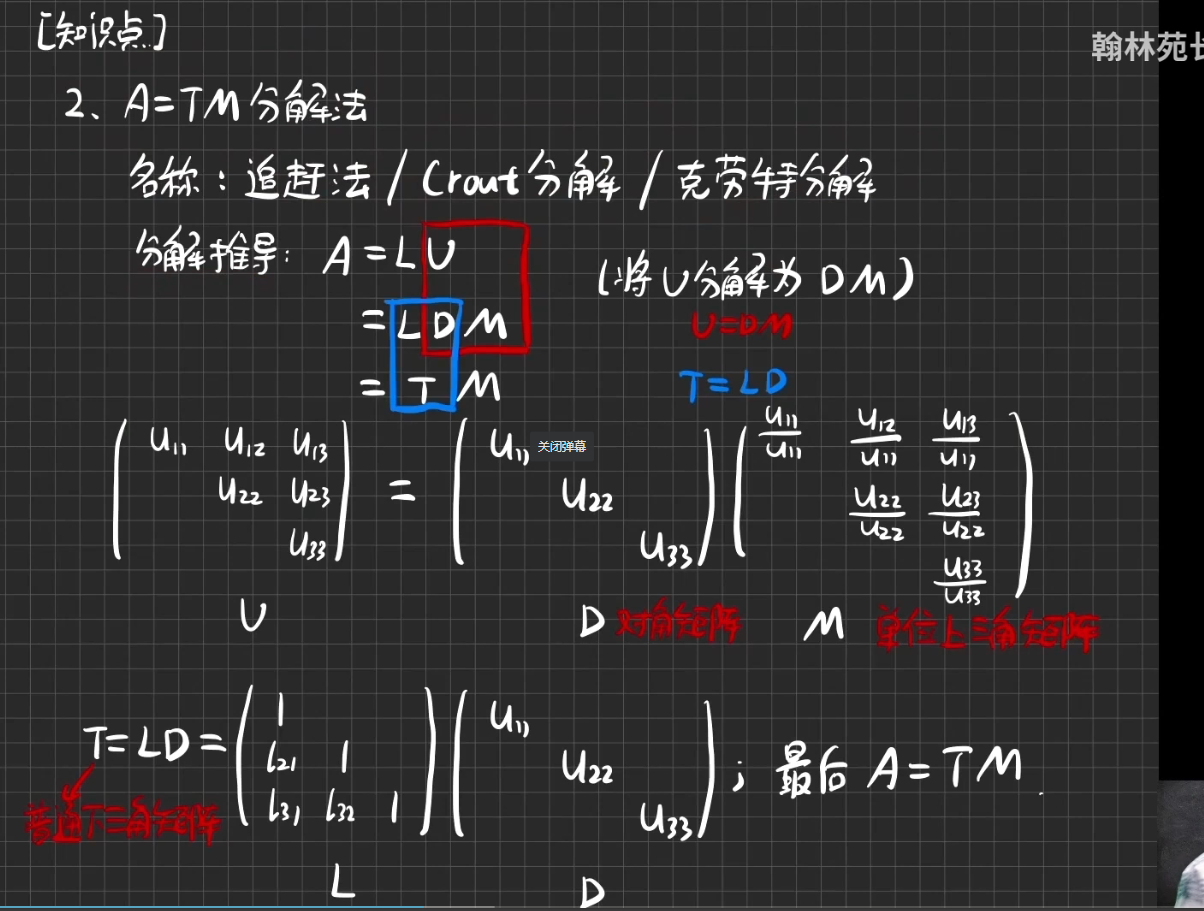 [知识点]
翰林苑
2、A=TM分解法
名称：追赶法/Crout分解/克劳特分解
分解推导：A=LU
(将U分解为DM)
=LDM
U=DM
=TM
T=LD
关闭弹幕
u₁₁ u₁₂ u₁₃
u₂₂ u₂₃
u₃₃
=
u₁₁
u₂₂
u₃₃
u₁₁/u₁₁ u₁₂/u₁₁ u₁₃/u₁₁
u₂₂/u₂₂ u₂₃/u₂₂
u₃₃/u₃₃
U
D 对角矩阵
M 单位上三角矩阵
T=LD=
1
l₂₁ 1
l₃₁ l₃₂ 1
u₁₁
u₂₂
u₃₃
；最后 A=TM.
普通下三角矩阵
L
D